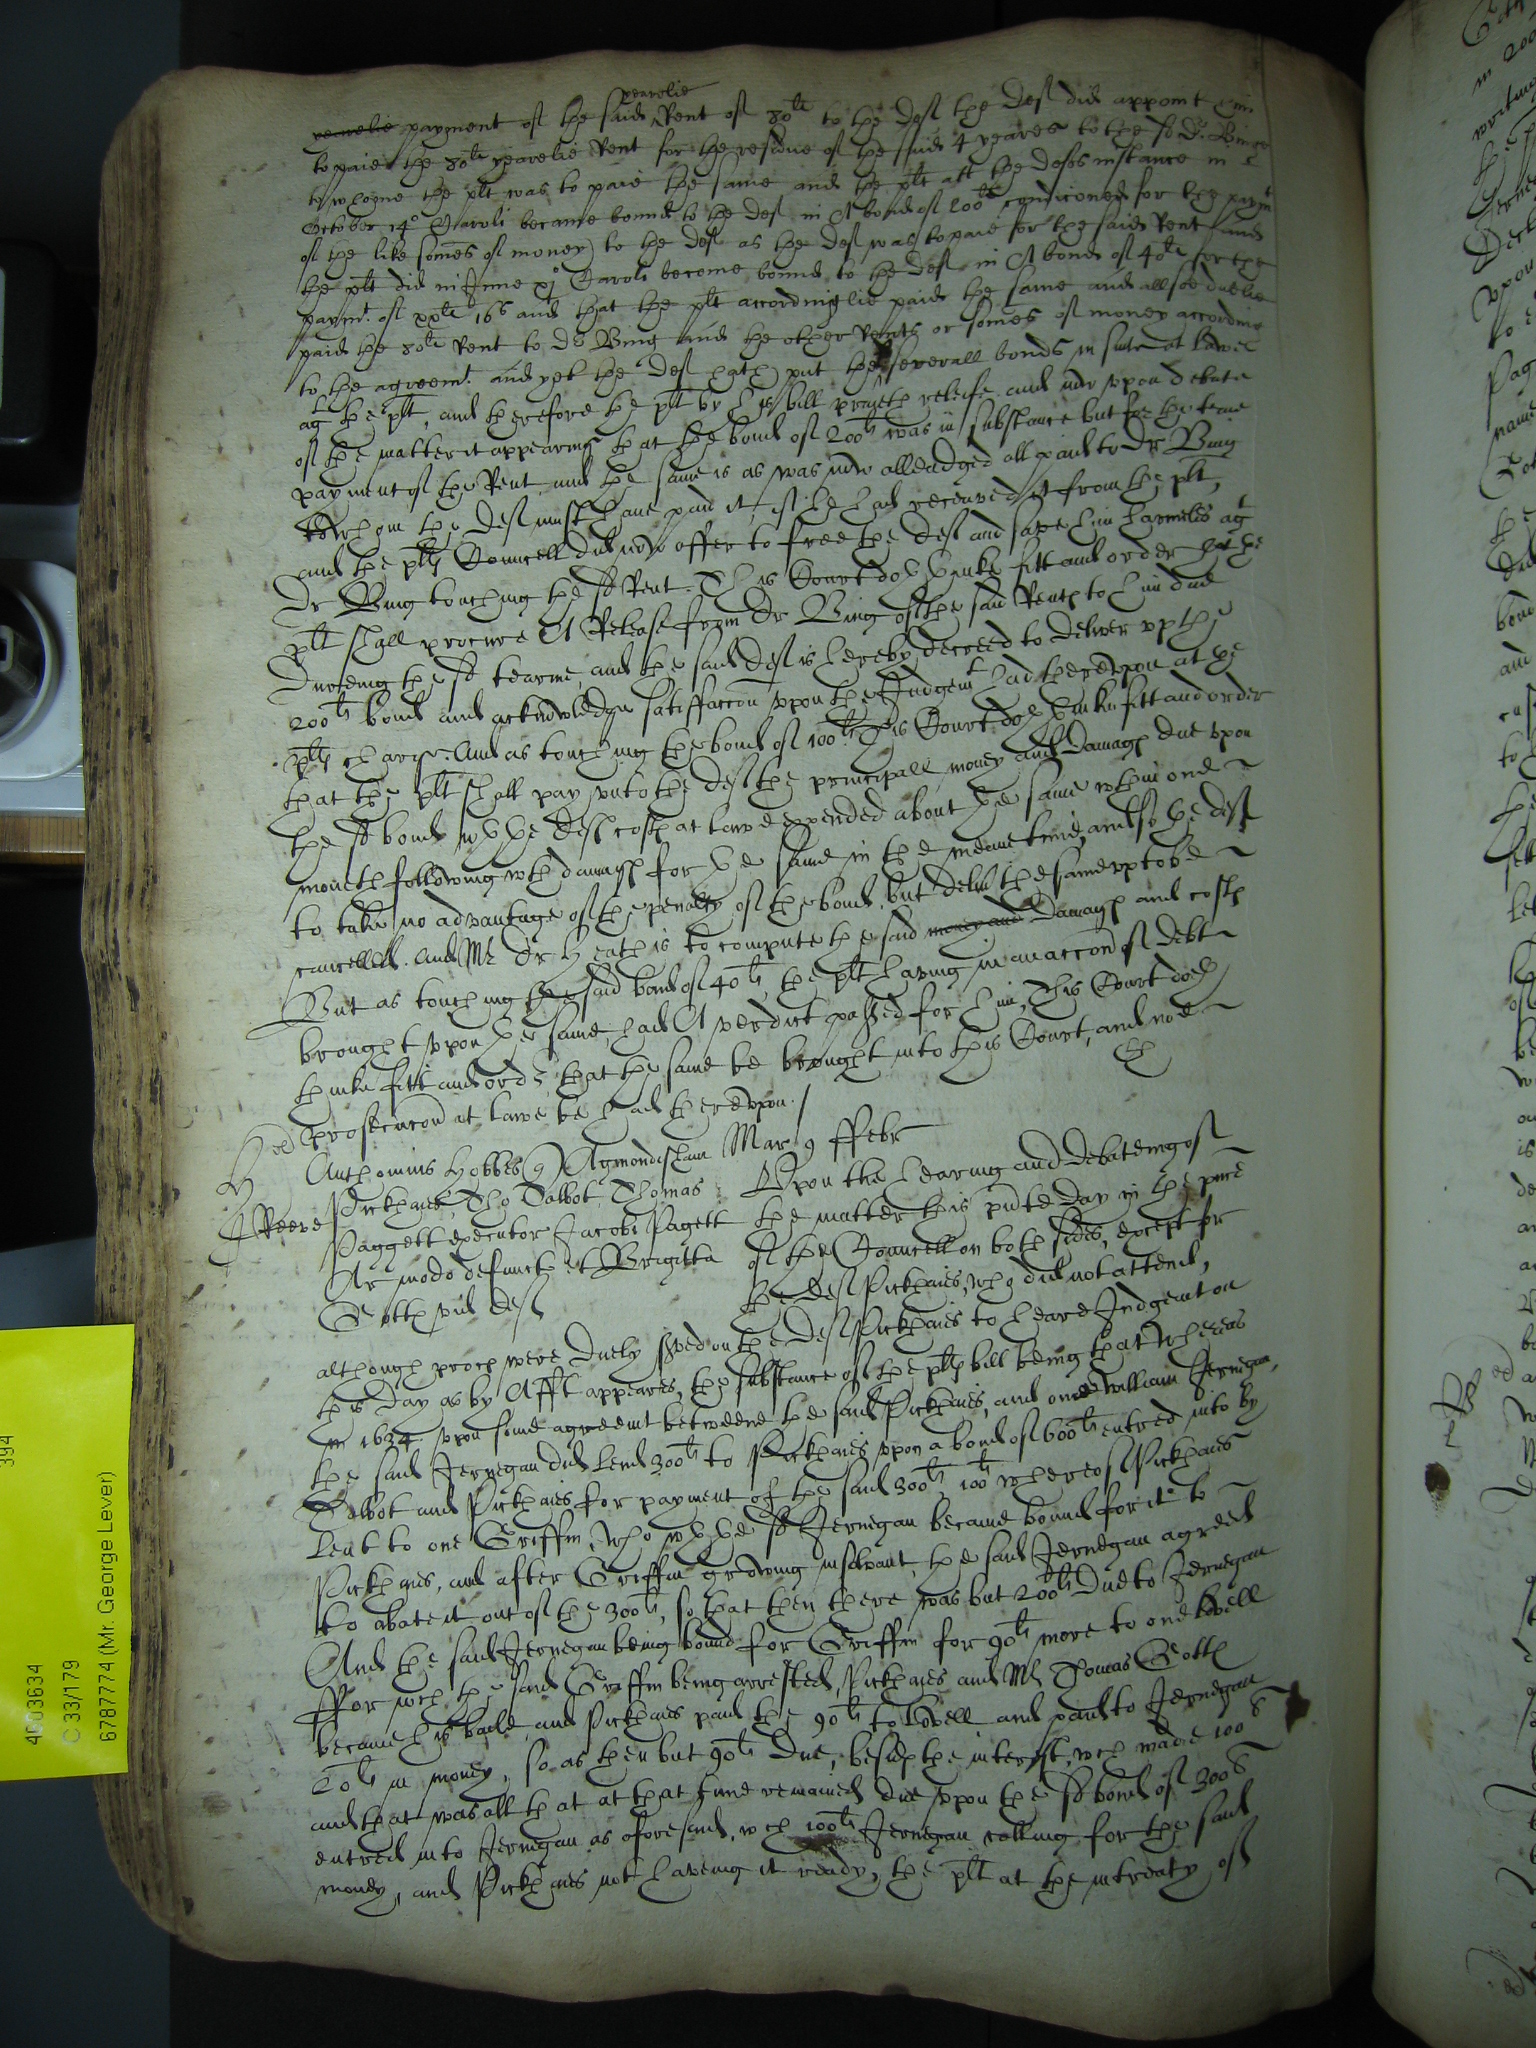 yearelie
yearelie payment of the said Rent of 80li to the def the def did appoint him
to paie the 80li yearelie Rent for the residue of the said 4 yeares to the sd Dr Binge
to whome the plt was to paie the same and the plt att the defts instance in
October 14o Caroli became bound to the def in A bond of 200li condiconed for the paymt
of the like somes of money to the def as the def was to paie for the said Rent and
the plt did in June xjo Caroli become bound to the def in A bond of 40li for the
paymt. of xxli 16s and that the plt accordinglie paid the same and allsoe duelie
paid the 80li Rent to Dr Bing and the other Rents or somes of money according
to the agreemt. and yet the def hath put the severall bonds in suite at Lawe
agt the plt, and therefore the plt by his bill prayeth releife and now upon debate
of the matter it appearing that the bond of 200li was in substance but for the true
payment of the Rent and the same is as was now alleadged all paid to Dr Bing
to whom the def must have paid it, if he had received it from the plt,
and the plts Councell did now offer to free the def and save him harmeles agt
Dr Bing touching the sd Rent. This Court doth thinke fitt and order that the
plt shall procure A Release from Dr Bing of the said Rents to him due
dureing the sd tearme, and the said def is hereby decreed to deliver up the
200li bond and acknowledge satisfaccon upon the Judgemt had thereupon at the
plts charge. And as touching the bond of 100li This Court doth thinke fitt and order
that the plt shall pay unto the def the principall money and damages due upon
the sd bond wth the defts costs at Lawe expended about the same wthin one
moneth following wth damages for the same in the meane time, and so the def
to take no advantage of the penalty of the bond, but deliver the same up to be
cancelled. And Mr Dr Heath is to compute the said money and damages and costs
But as touching the said bond of 40li, the plt having in an accon of debt
brought upon the same, had A verdict passed for him, This Court doth
thinke fitt and order that the same be brought into this Court, and noe
prosecucon at Lawe be had thereupon. /
Anthonius Hobbes q Agmondisham Mar 9 Febr
Pickhaies, Tho Talbot, Thomas Upon the hearing and debateing of
Reeve
Paggett executor Jacobi Pagett the matter this pnte day in the pnce
Ar modo defuncti et Brigitta of the Councell on both sides, except for
Gott vid def the def Pickhaies, who did not attend,
although proces were duely served on the def Pickhaies to heare Judgemt on
this day as by Afft appeares, the substance of the plts bill being that whereas
in 1634 upon some agreemt betweene the said Pickhaies, and one William Jernegan,
the said Jernegan did lend 300li to Pickhaies upon a bond of 600li entred into by
Talbot and Pickhaies for payment of the said 300li, 100li whereof Pickhaies
lent to one Griffin, who wth the sd Jernegan became bound for it to
Pickhaies, and after Griffin growing insolvant, the said Jernegan agreed
to abate it out of the 300li, so that then there was but 200li due to Jernegan
And the said Jernegan being bound for Griffin for 90li more to one Lovell
For wch the said Griffin being arrested, Pickhaies and Mr Thomas Gott
became his baile, and Pickhaies paid the 90li to Lovell, and paid to Jernegan
20li in money, so as then but 90li due, besides the interest, wch made 100li
and that was all that at that time remained due upon the sd bond of 300li
entred into Jernegan as aforesaid, wch 100li Jernegan calling for the said
money, and Pickhaies not having it ready, the plt at the intreaty of
394
4003634
C 33/179
6787774 (Mr. George Lever)